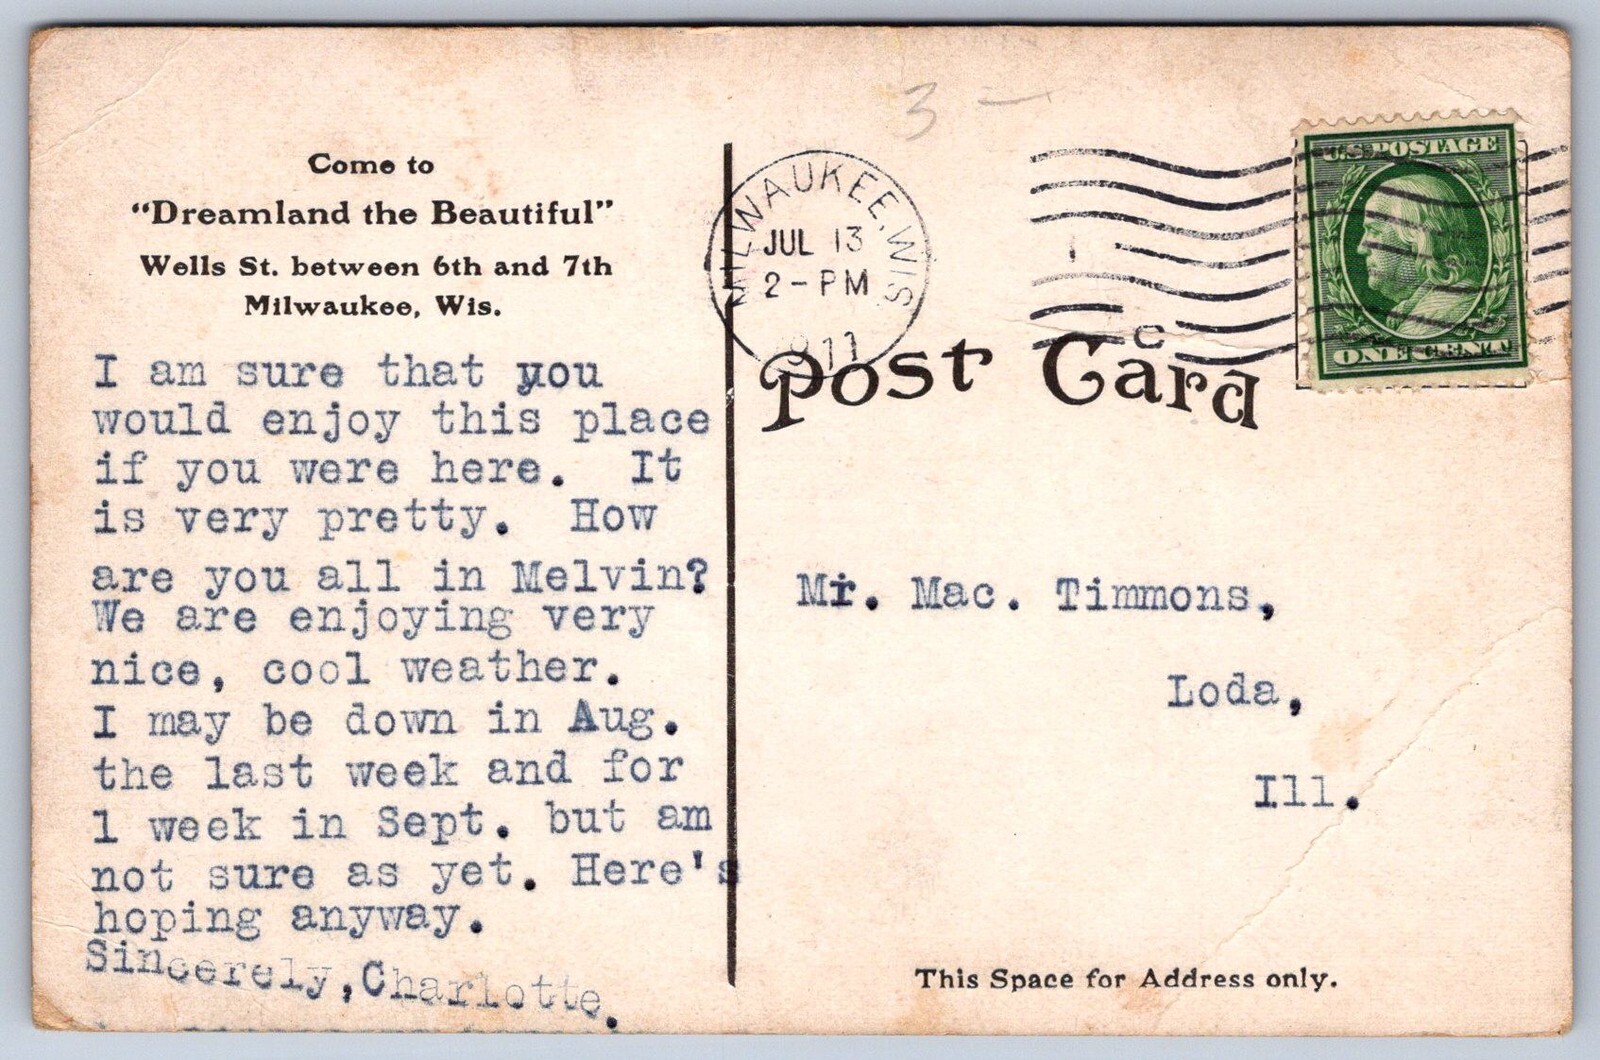 3 -
Come to
"Dreamland the Beautiful"
Wells St. between 6th and 7th
Milwaukee, Wis.
I am sure that you
would enjoy this place
if you were here.  It
is very pretty.  How
are you all in Melvin?
We are enjoying very
nice, cool weather.
I may be down in Aug.
the last week and for
1 week in Sept. but am
not sure as yet. Here's
hoping anyway.
Sincerely,Charlotte.
MILWAUKEE, WIS.
JUL 13
2-PM
1911
C
U.S. POSTAGE
ONE CENT
Post Card
Mr. Mac. Timmons,
Loda,
Ill.
This Space for Address only.